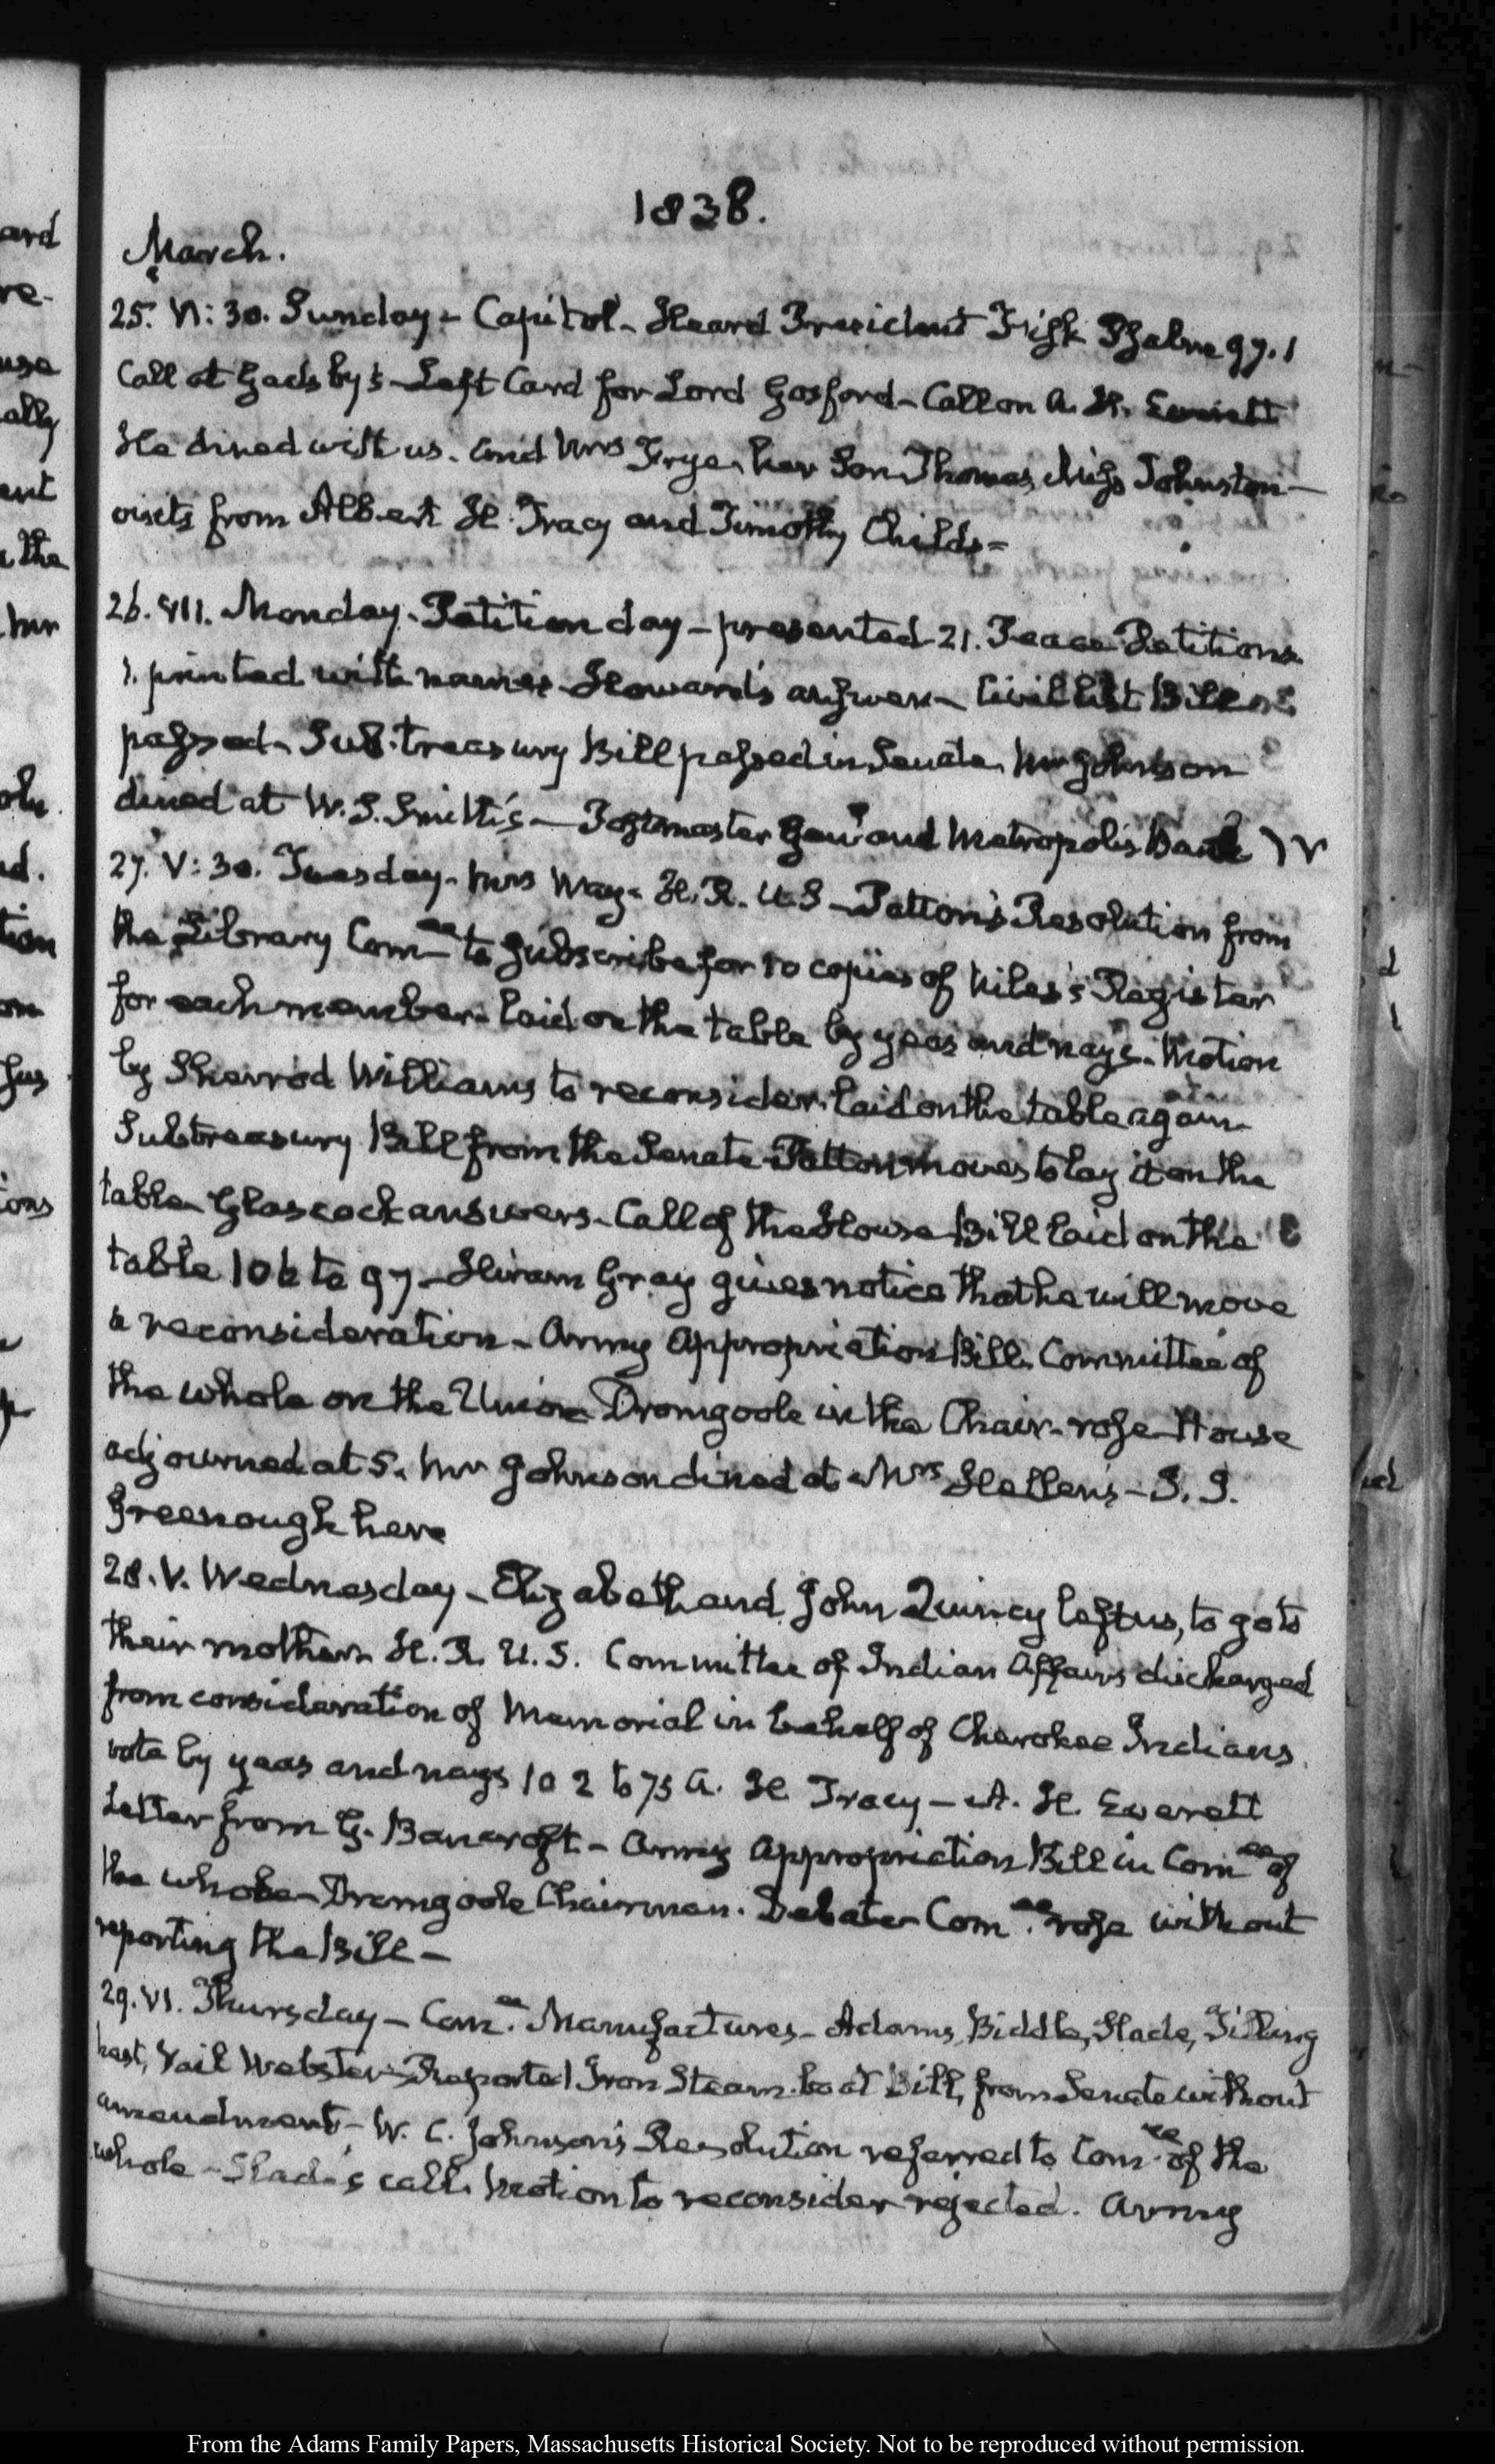 1838.
March.
25. VI: 30. Sunday - Capitol - Heard President Fisk Psalm 97. 1
Call at Gadsby's - Left Card for Lord Gosford - Call on A. H. Everett
He dined with us. and Mrs Frye, her Son Thomas, Miss Johnston -
visits from Albert H. Tracy and Timothy Childs -
26. VII. Monday. Petition day - presented 21. Peace Petitions
1. printed with names - Howard's answer - Civil list Bill
passed - Sub-treasury Bill passed in Senate. Mr Johnson
dined at W. S. Smith's - Postmaster Genl and Metropolis Bank
27. V: 30. Tuesday. Mrs Way - H. R. U.S - Patton's Resolution from
the Library Comee to subscribe for 10 copies of Niles's Register
for each member - laid on the table by yeas and nays - Motion
by Sherrod Williams to reconsider. laid on the table again -
Subtreasury Bill from the Senate - Patton moves to lay it on the
table - Glascock answers - Call of the House - Bill laid on the
table 106 to 97 - Hiram Gray gives notice that he will move
a reconsideration - Army Appropriation Bill. Committee of
the whole on the Union - Dromgoole in the Chair - rose - House
adjourned at 5. Mr Johnson dined at Mrs Hellen's -
Greenough here
28. V. Wednesday - Elizabeth and John Quincy left us, to go to
their mother - H. R. U. S. Committee of Indian Affairs discharged
from consideration of Memorial in behalf of Cherokee Indians.
vote by yeas and nays 102 to 75 A. H Tracy - A. H. Everett
Letter from G. Bancroft - Army Appropriation Bill in Comee of
the whole - Dromgoole Chairman. Debate - Comee rose without
reporting the Bill -
29. VI. Thursday - Comee Manufactures - Adams, Biddle, Slade, Tilling
hast, Vail Webster - Reported Iron Steam-boat Bill, from Senate without
amendment - W. C. Johnson's Resolution referred to Comee of the
whole - Slade's call. Motion to reconsider rejected. Army
From the Adams Family Papers, Massachusetts Historical Society. Not to be reproduced without permission.